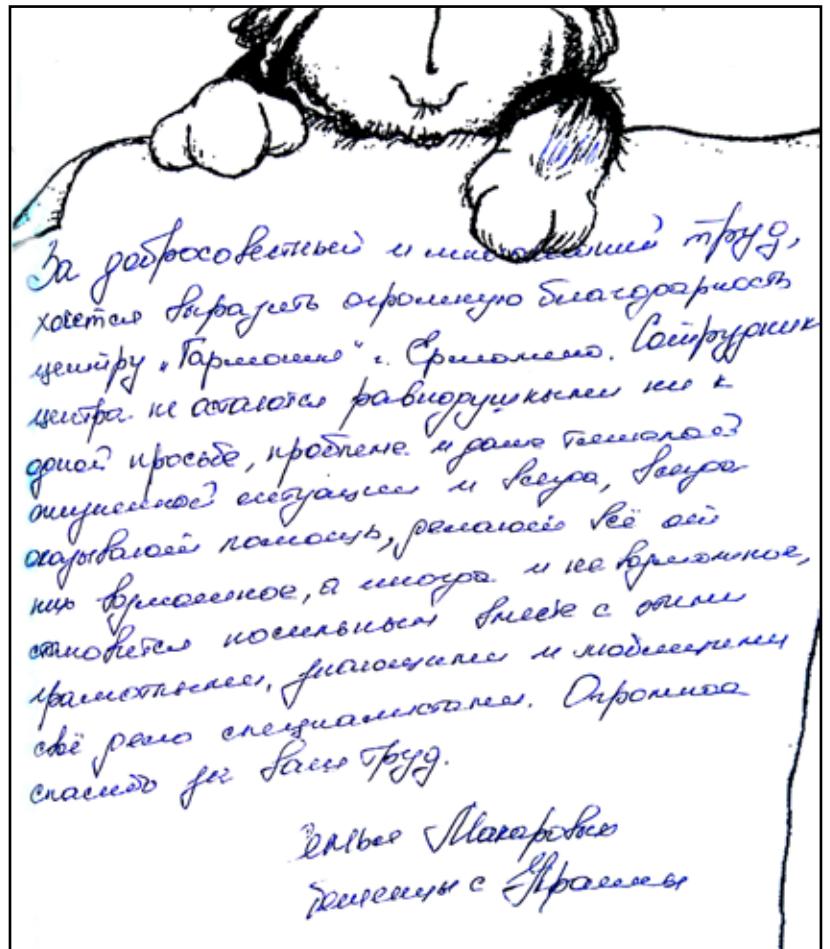 За добросовестный и многолетний труд,
хочется выразить огромную благодарность
центру "Гармония" г. Ермолино. Сотрудник
центра не остаются равнодушными ни к
одной просьбе, проблеме и даже тяжелой
жизненной ситуации и всегда, всегда
оказывают помощь, делают всё от
них возможное, а иногда и не возможное,
становится посильным вместе с этими
грамотными, знающими и любящими
своё дело специалистами. Огромное
спасибо за ваш труд.
семья Макаровых
беженцы с Украины